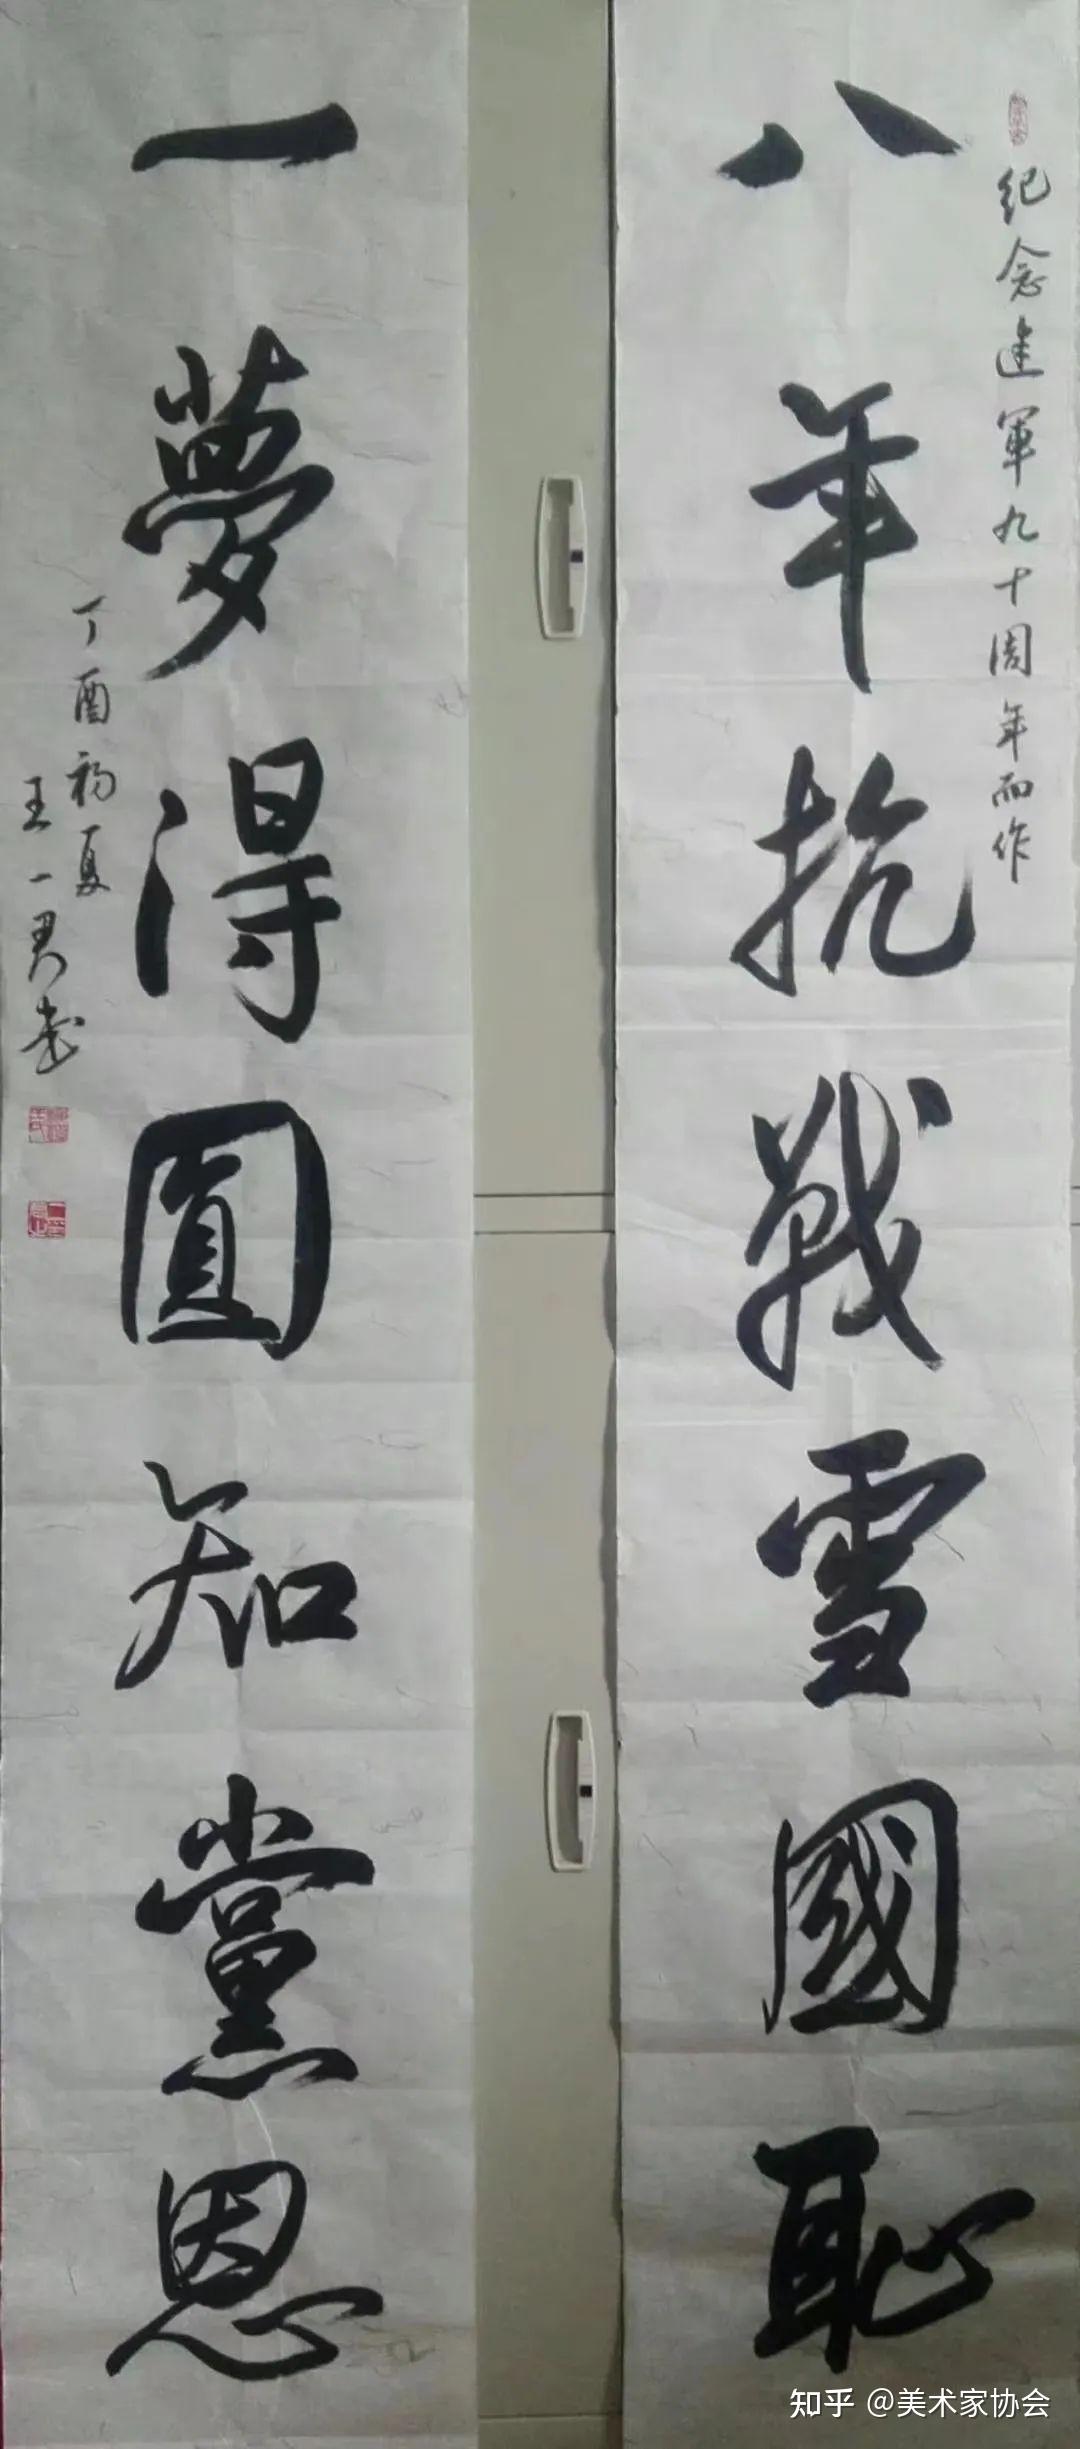 紀念建軍九十周年而作
八年抗戰雪國恥
一夢得圓知黨恩
丁酉初夏
王一君书
知乎 @美术家协会